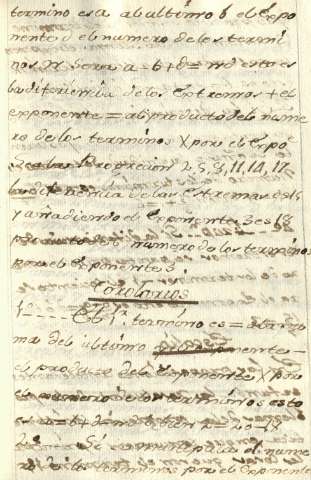 termino es a al ultimo b el Expo
nente d el numero de los termi
nos n sera a - b + d = nd esto es
la diferiencia de los Extremos + el
exponente = al producto del nume
ro de los terminos X por el Expo
Progrecion 2, 5, 8, 11, 14, 17
la diferencia de los Extremos es 15
y añadiendo el Exponente 3 es 18
producto del numero de los terminos
por el Exponente 3
Corolarios
1º El 1º termino es = a la
ma del ultimo
el producto del Exponente X por
el numero de los terminos esto
es
2º Si se multiplica el nume
ro de los terminos por el Exponente